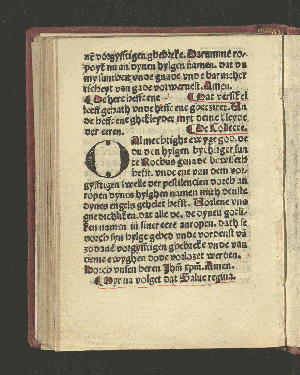 nē vorgyfftigen ghebreke. Darumme ro⸗
pe yk an dynen hylgen namen. dat du
my sunthent vnde gnade vnde barmher⸗
ticheyt van gade vorweruest. Amen.
De here hefft ene Dat versikel
leeff gehath vnde hefft ene gheczeret. An
de hefft ene ghekleydet myt deme kleyde
der eren. De Collecte.
O Almechtighe ewyge god. de
du den hylgen bychtiger sun
te Rochus genade bewiset
hefst. vnde ene van dem vor⸗
gyfftigen swelle der pestilencien dorch an
ropen dynes hylghen namen mith denste
dynes engels gehelet hefst. Vorlene vns
gnedichliken. dat alle de. de dynen gotli⸗
ken namen in siner eere anropen. dath se
dorch syn hylge gebed vnde vordenst vā
zodane vorgyfftigen ghebreke vnde van
deme ewyghen dode vorlozet werden.
Dorch vnsen heren Jhm̄ xp̄m. Amen.
Hyr na volget dat Salue regina.